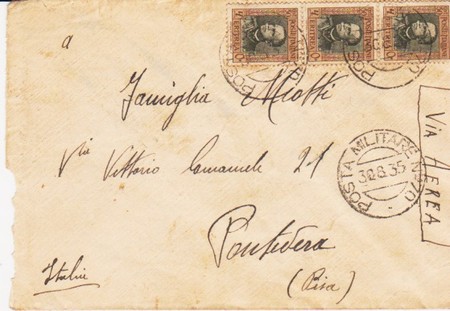 a
Famiglia Miotti
Via Vittorio Emanuele 21
Pontedera
(Pisa)
Italia
POSTA MILITARE N° 70
30.8.35
VIA AEREA